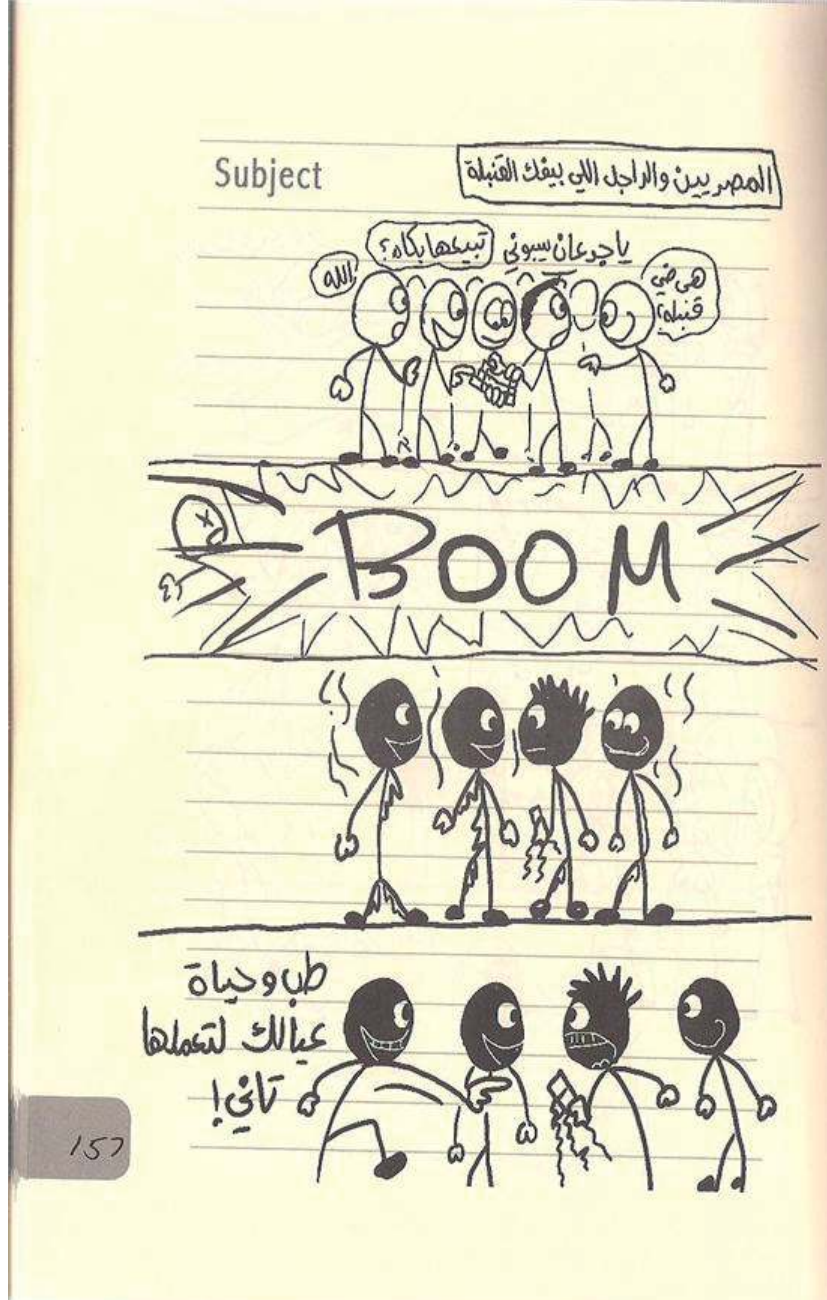 Subject
المصريين والراجل اللي بيفك القنبلة
هي ضي
قنبلة؟
يا جدعان سيبوني
تبيعها بكام؟
الله
BOOM
طب وحياة
عيالك لتعملها
تاني!
157